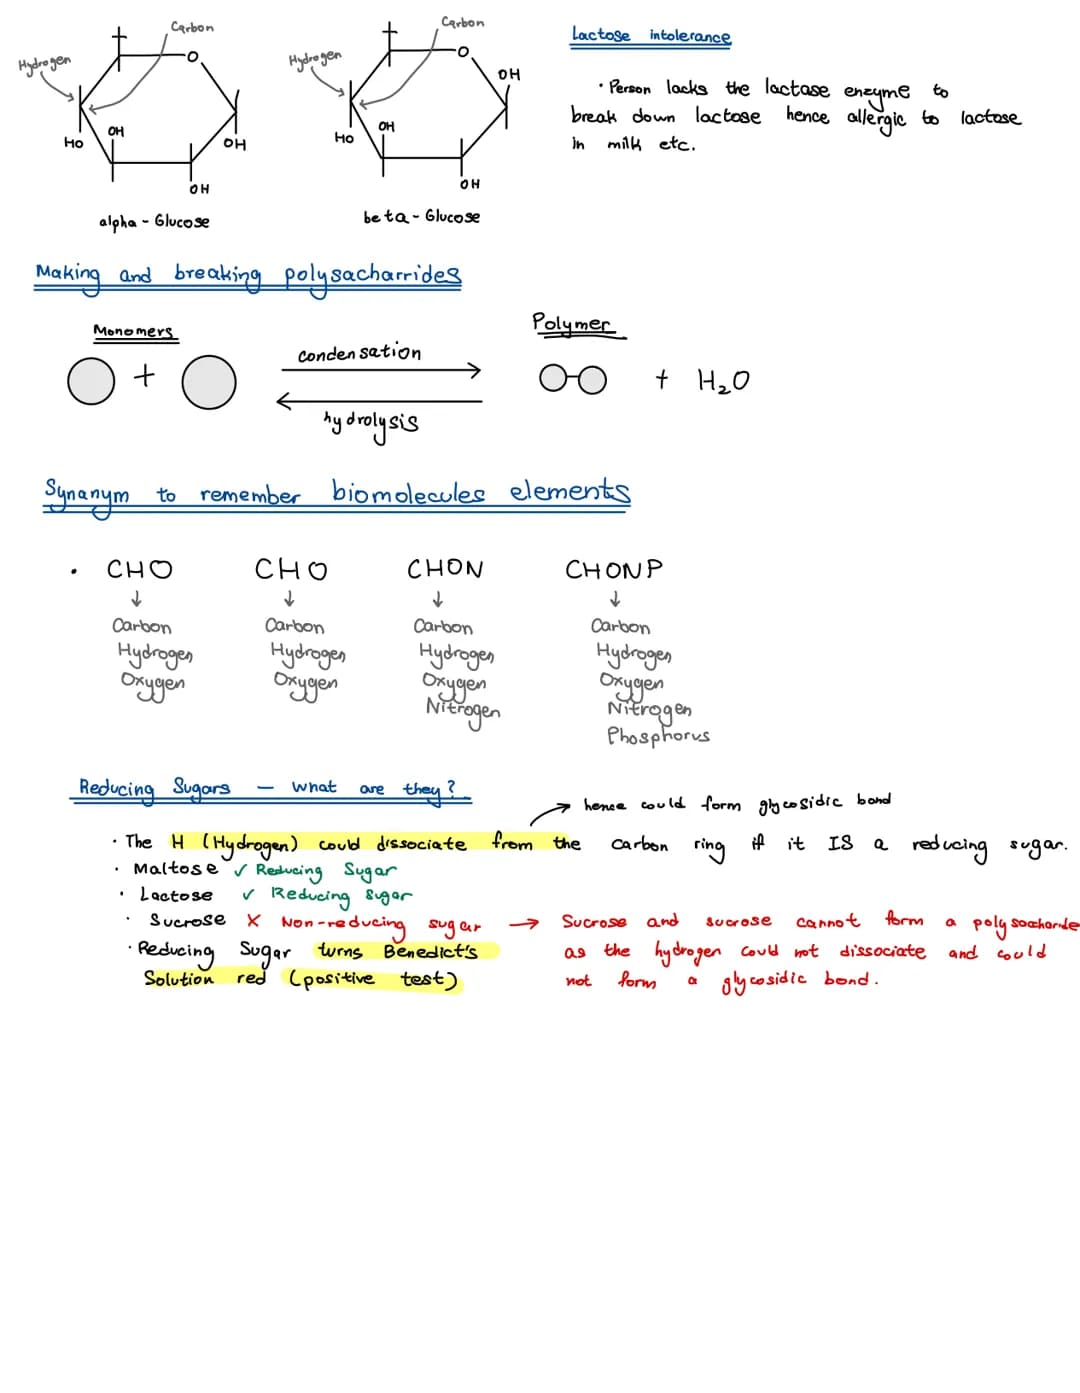 Carbon
Hydrogen
O
HO
OH
OH
OH
alpha - Glucose
Carbon
Hydrogen
O
OH
HO
OH
OH
beta - Glucose
Lactose intolerance
• Person lacks the lactase enzyme to
break down lactose hence allergic to lactose
in milk etc.
Making and breaking polysacharrides
Monomers
+
condensation
hydrolysis
Polymer
+ H₂O
Synanym to remember biomolecules elements
• CHO CHO CHON CHONP
↓ ↓ ↓ ↓
Carbon Carbon Carbon Carbon
Hydrogen Hydrogen Hydrogen Hydrogen
Oxygen Oxygen Oxygen Oxygen
Nitrogen Nitrogen
Phosphorus
Reducing Sugars – what are they?
→ hence could form glycosidic bond
• The H (Hydrogen) could dissociate from the carbon ring if it IS a reducing sugar.
• Maltose ✓ Reducing Sugar
• Lactose ✓ Reducing Sugar
• Sucrose X Non-reducing sugar → Sucrose and sucrose cannot form a polysaccharide
as the hydrogen could not dissociate and could
not form a glycosidic bond.
• Reducing Sugar turns Benedict's
Solution red (positive test)